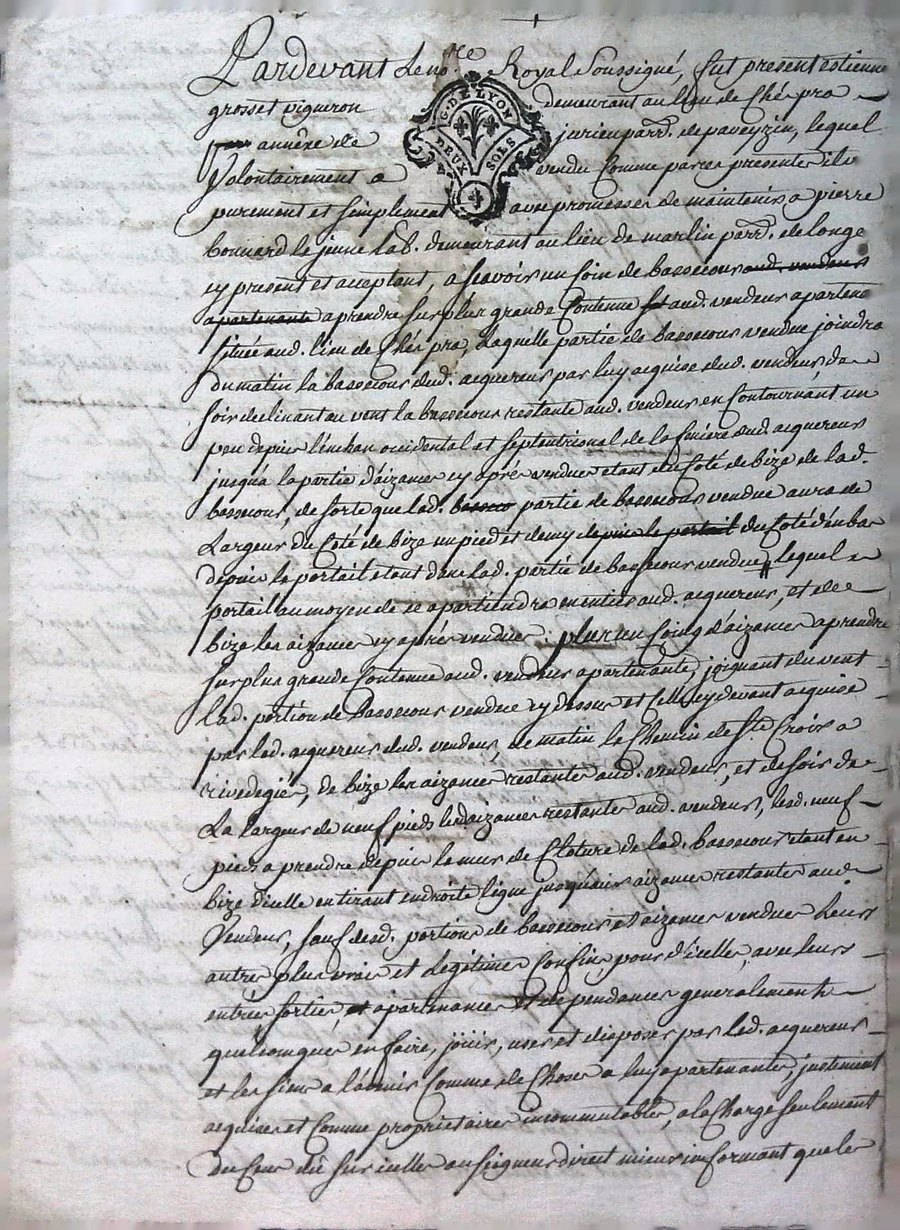 Pardevant Le no.re Royal Soussigné, fut present estienne
grosset vigneron demeurant au lieu de Chés pra
G. DE LYON
DEUX SOLS
par annére de jurieu parr. de paveyzin, lequel
Volontairement a vendu Comme par ces presentes il v
purement et simplement avec promesses de maintenir a pierre
bonnard le jeune lab. demeurant au lieu de marlin parr. de longe
cy present et acceptant, a scavoir un Coin de bassecour aud. vendeur
apartenante a prendre sur plus grande Contenue aud. vendeur apartena
située aud. lieu de Chés pra, Laquelle partie de bassecour vendue joindra
du matin la bassecour dud. acquereur par luy acquise dud. vendeur, de
soir declinant au vent la bassecour restante aud. vendeur en Contournant un
peu depuis occidental et septentrional de la dud. acquereur
jusqu'a la partie d'aizance cy aprés vendue etant du Coté de bize de lad.
bassecour, de sorte que lad. basseco partie de bassecour vendue aura de
Largeur du Coté de bize un pied et demy depuis le portail du Coté d'enbas
depuis le portail etant dans lad. partie de bassecour vendue, lequel
portail au moyen de ce apartiendra en entier aud. acquereur, et de
bize les aizances cy aprés vendues : plus un Coing d'aizances a prendre
sur plus grande Contenue aud. vendeur apartenante, joignant du vent
lad. portion de bassecour vendue cy dessus et Celle cy devant acquise
par led. acquereur dud. vendeur, de matin le Chemin de Ste Croix a
rivedegier, de bize les aizances restantes aud. vendeur, et de soir de
La largeur de neuf pieds les aizances restantes aud. vendeur, lesd. neuf
pieds a prendre depuis le mur de Cloture de lad. bassecour etant en
bize d'icelle en tirant en droite ligne jusqu'aux aizances restantes aud.
Vendeur, sauf desd. portions de bassecour et aizances vendues Leurs
autres plus vrais et Legitimes Confins, pour d'icelles, avec leurs
entrées, sorties, et apartenances et dependances generalement
quelconques en faire, jouir, user et disposer par led. acquereur
et les siens a l'avenir Comme de Choses a luy apartenantes, justement
acquises et Comme proprietaires incommutables, a la Charge seulement
du Cens dû sur icelles au seigneur direct mieux informant que les